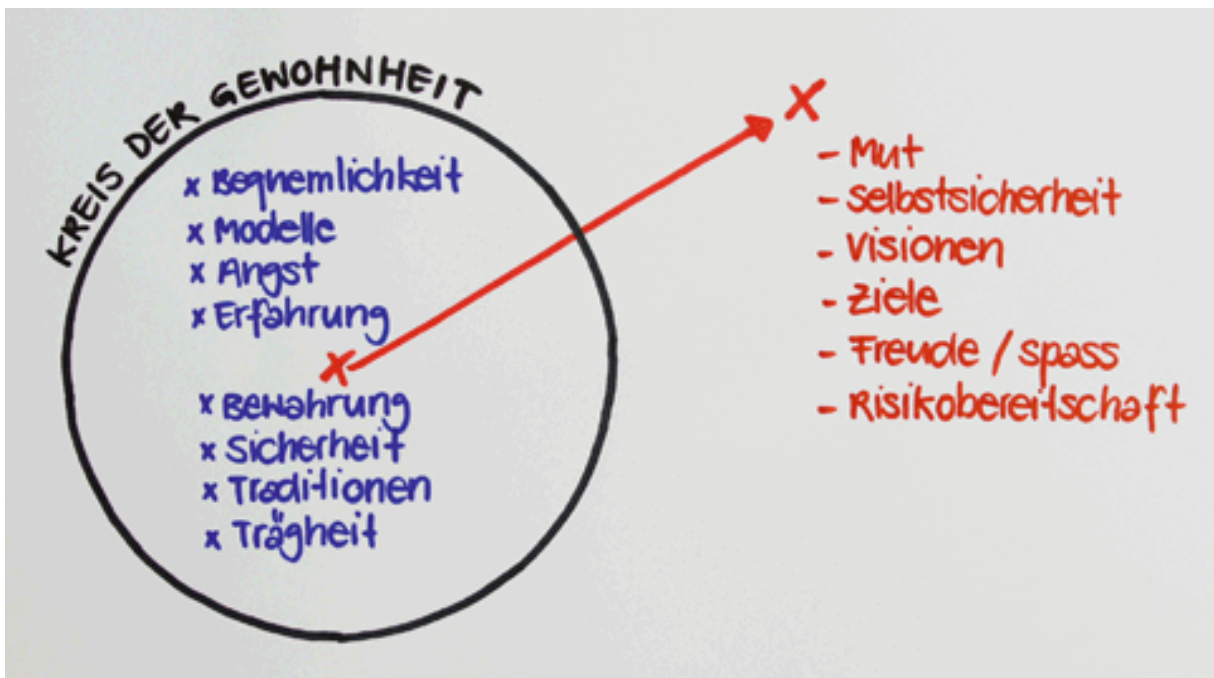 KREIS DER GEWOHNHEIT
x Bequemlichkeit
x Modelle
x Angst
x Erfahrung
x Bewahrung
x Sicherheit
x Traditionen
x Trägheit
x
- Mut
- Selbstsicherheit
- Visionen
- Ziele
- Freude / Spass
- Risikobereitschaft